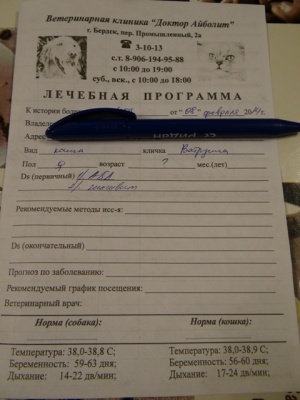 Ветеринарная клиника "Доктор Айболит"
г. Бердск, пер. Промышленный, 2а
☎ 3-10-13
с.т. 8-906-194-95-88
с 10:00 до 19:00
суб., вск., с 10:00 до 18:00
ЛЕЧЕБНАЯ ПРОГРАММА
К истории от " " февраля
Владел
Адрес
Вид кошка кличка
Пол ♀ возраст 7 мес.(лет)
Ds (первичный) 1)
2)
Рекомендуемые методы исс-я:
Ds (окончательный)
Прогноз по заболеванию:
Рекомендуемый график посещения:
Ветеринарный врач:
Норма (собака): Норма (кошка):
Температура: 38,0-38,8 С; Температура: 38,0-38,9 С;
Беременность: 59-63 дня; Беременность: 56-60 дня;
Дыхание: 14-22 дв/мин; Дыхание: 17-24 дв/мин;